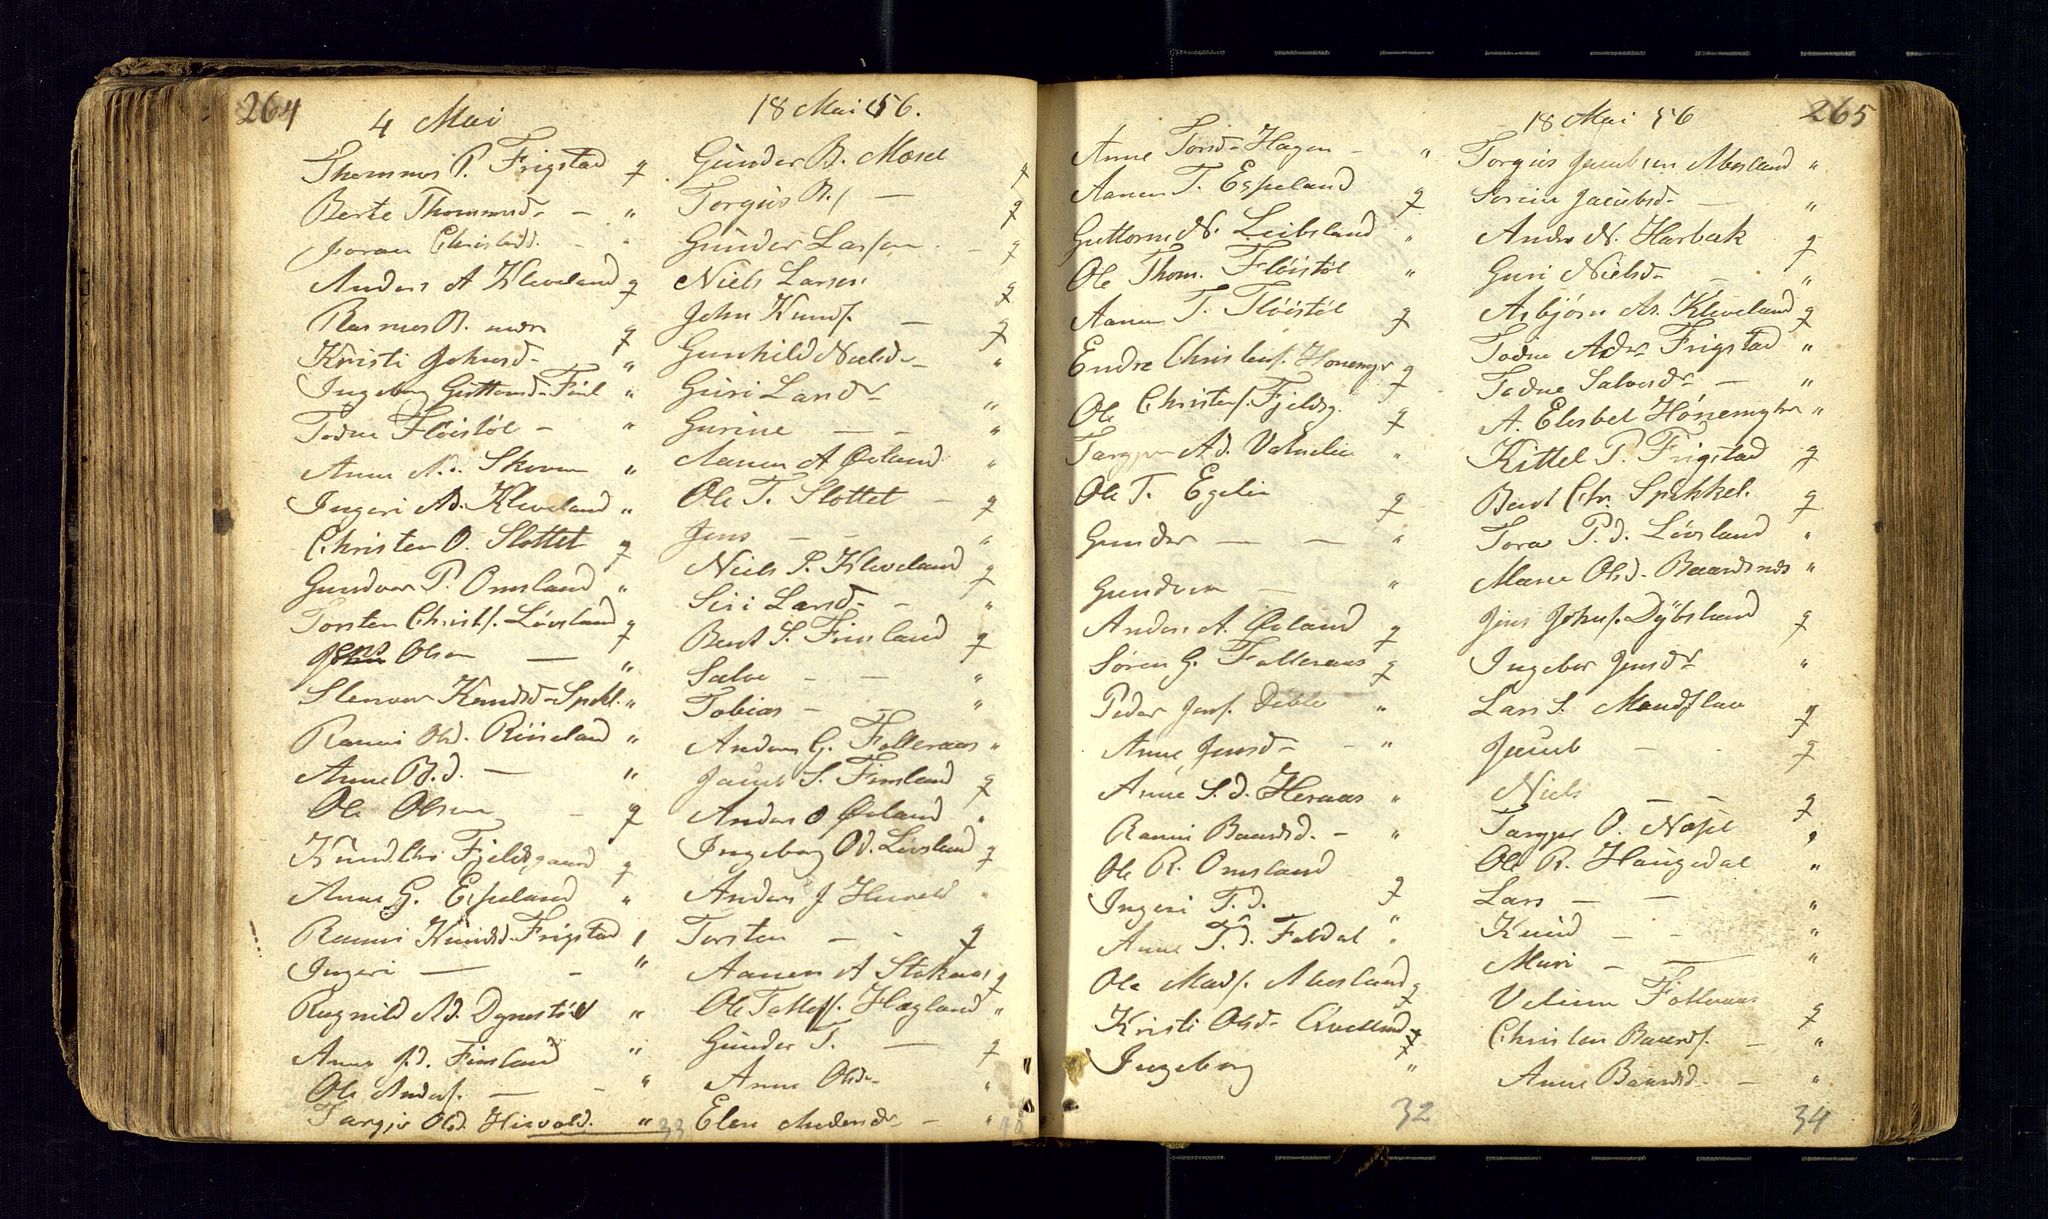 264
4 Mai
Thommes P. Frigstad g
Berte Thommesd. — "
Joran Christd. - "
Anders A Kleveland g
Rasmus B. g
Kristi Johnsd. "
Ingeborg Guttormsd. "
Todne Flöistöl — "
Anne N. Skoven "
Ingeri Ad. Kleveland "
Christen O. Slottet g
Gundvor P. Omsland "
Torsten Christs. Lövsland g
Jens Olsen — "
Stenvor Knudsd. Spikl. "
Ranni Olsd. Röiseland "
Anne B.d. — "
Ole Olsen - g
Knud Chr Fjeldsgaard g
Anne G. Espeland "
Ranni Knudsd. Frigstad "
Ingeri — - "
Ragnild Ad. Dynestöl "
Anne J.d. Finsland "
Ole Anders. — - "
Targjer Olsd. Hirvold. "
33
18 Mai 56.
Gunder B. Mosel g
Torgius B. — g
Gunder Larsen - g
Niels Larsen g
John Knuds. — g
Gunhild Nielsd. "
Guri Larsd. "
Gurine — - "
Aanen A Övland "
Ole T. Slottet - g
Jens — - "
Niels P. Kleveland g
Siri Larsd. - "
Bent S. Finsland g
Salve - — "
Tobias - "
Anders G. Følleraas "
Jacob S. Finsland g
Anders O Övland "
Ingeborg Od. Lövsland g
Anders J Hirvold "
Torsten — - g
Aanen A Stokaas g
Ole Tolless. Hægland "
Gunder T. — g
Anne Olsd. "
Elen Andersdr — "
265
Anne Torsd. Hagen - "
Aanen T. Espeland g
Guttorm N. Leibsland "
Ole Thom. Flöistöl "
Aanen T. Flöistöl g
Endre Christens. Honemyr g
Ole Christens. Fjeldsg. g
Targjer Ad. "
Ole T. Egelie g
Gunder — — "
Gundvor — "
Anders A. Övland g
Sören G. Følleraas g
Peder Jens. "
Anne Jensd. - "
Anne S.d. Heraas "
Ranni Baardsd. - "
Ole R. Omsland g
Ingeri T.d. "
Anne T.d. Fahdal "
Ole Mads. Mosland g
Kristi Olsd. Qvelland g
Ingeborg "
32
18 Mai 56
Torgius Jacobsen Mosland "
Sorine Jacobsd. — "
Andr N. Harbak g
Guri Nielsd. — "
Asbjörn As. Kleveland g
Todne Adr Frigstad "
Todne Salvesdr — "
A. Elisbet Hönemyhr "
Kittel P. Frigstad g
Bent Chr. Spikkel. g
Tora P.d. Lövsland "
Maren Olsd. Baardsnes "
Jens Johns. Dÿbsland g
Ingebor Jensdr "
Lars S. Mandflaa g
Jacob - - g
Niels — - g
Targjer O. "
Ole R. Haugedal "
Lars — — "
Knud - - "
Mari - — "
Følleraas g
Christen Baards. — "
Anne Baardsd. — "
34